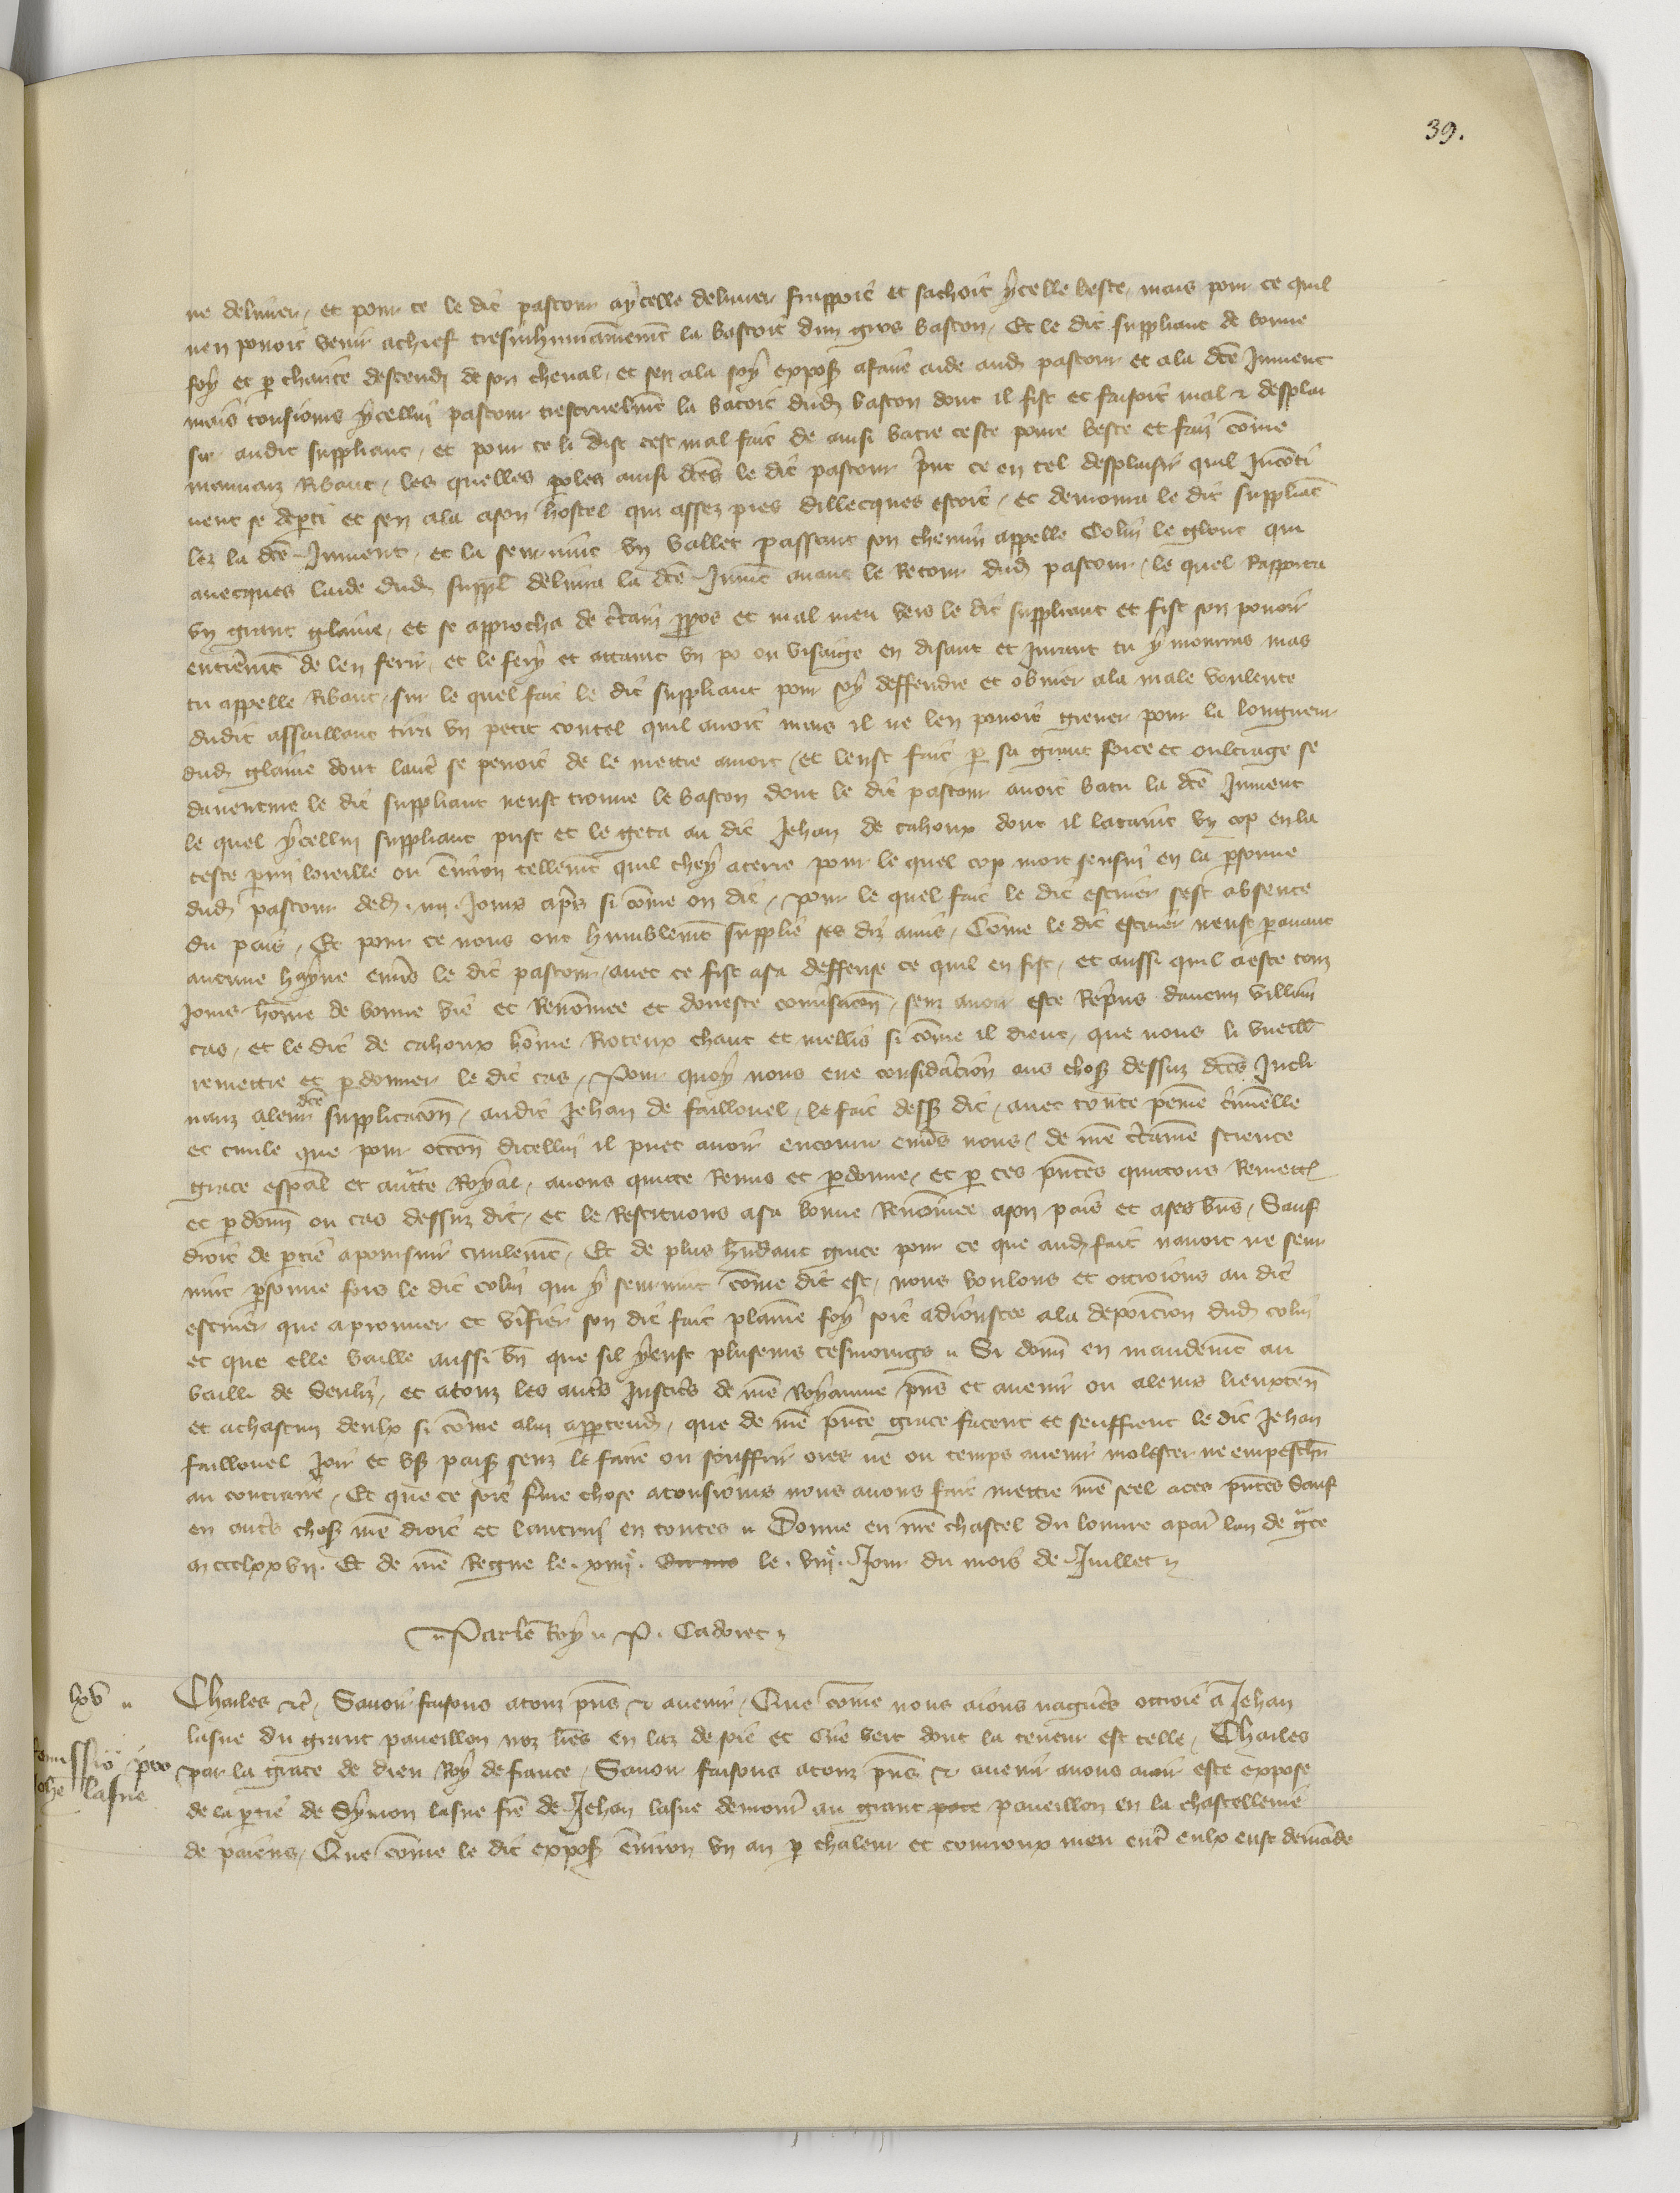 39.
ne delivrer, et pour ce le dit pastour a ycelle delivrer frappoit et sachoit ycelle beste, mais pour ce quil
nen povoit venir achief tresinhumainemẽt la bastoit dun gros baston, Et le dit suppliant de bonne
foy et p chaute descendi de son cheval, et sen ala soy exposs afaire aide aud pastour et ala dce Jument
mais tousiours ycellui pastour trescruelmẽt la batoit dud baston dont il fist et faisoit mal et desplai
sir audit suppliant, et pour ce li dist cest mal fait de ainsi batre ceste povre beste et faiz cõme
mauvaiz Ribaut, les quelles poles ainsi dces le dit pastour print ce en tel desplaisir quil Incõti
nent se dpti et sen ala ason hostel qui assez pres dillecques estoit, et demoura le dit suppliãt
lez la dce Jument, et la seurvint vn vallet passant son chemin appelle Colin le glout qui
avecques laide dud suppl delivra la dce Jumẽt avant le Retour dud pastour, le quel Rapporta
vn grant glaive, et se approcha de ctain ppos et mal meu vers le dit suppliant et fist son povoir
entieremẽt de len ferir, et le fery et attaint vn po ou visaige en disant et Jurant tu y mourras mas
tu appelle Ribaut, sur le quel fait le dit suppliant pour soy deffendre et obvier ala male voulente
dudit assaillant tira vn petit coutel quil avoit mais il ne len povoit grever pour la longueur
dud glaive dont laut se penoit de le mettre amort, et leust fait p sa grant force et oultrage se
daventure le dit suppliant neust trouve le baston dont le dit pastour avoit batu la dce Jument
le quel ycellui suppliant prist et le geta au dit Jehan de cahoux dont il lataint vn cop en la
teste parmi loreille ou ẽviron tellemẽt quil chey aterre pour le quel cop mort sensui en la psonne
dud pastour ded . iiij . Jours apres si cõme on dit, Pour le quel fait le dit escuier sest absente
du pais, Et pour ce nous ont humblemẽt supplie ses diz amis, Cõme le dit escuier neust pavant
aucune hayne envs le dit pastour, avec ce fist asa deffense ce quil en fist, et aussi quil a este touz
Jours hõme de bonne vie et Renõmee et doneste convsacõn, senz avoir este Repris daucun villain
cas, et le dit de cahoux hõme Roteux chaut et mellis si cõme il dient, que nous li vueill
remettre et pdonner le dit cas, Pour quoy nous eue considacion aus choss dessuz dces Incli
nanz aleur dce supplicacõn, audit Jehan de faillouel, le fait dess dit, avec toute peine criminelle
et civile que pour occõn dicellui il puet avoir encouru envs nous, de nre ctaine science
grace espal et auctte Royal, avons quitte Remis et pdonne, et p ces pntes quittons Remett
et pdonn ou cas dessuz dit, et le Restituons asa bonne Renõmee ason pais et ases bns, Sauf
droit de ptie apoursuir civilemẽt, Et de plus habundant grace pour ce que aud fait navoit ne seur
vint psonne fors le dit colin qui y seurvint cõme dit est, nous voulons et ottroions au dit
escuier que aprouver et vifier son dit fait plaine foy soit adioustee ala deposicion dud colin
et que elle vaille aussi bn que sil yeust pluseurs tesmoings ⸗ Si donn en mandemẽt au
bailli de senliz, et atouz les auts Justics de nre Royaume pns et avenir ou aleurs lieuxten
et achascun deulx si cõme alui apptendra, que de nre pnte grace facent et seuffrent le dit Jehan
faillouel Joir et vss paiss senz le faire ou souffrir ores ne ou temps avenir molester ne empesch
au contraire, Et que ce soit ferme chose atousiours nous avons fait mettre nre seel aces pntes Sauf
en auts choss nre droit et lautrui en toutes ⸗ Donne en nre chastel du louvre a par lan de gce
m ccc lxxvij . Et de nre Regne le . xiiije . du mo le . viije . Jour du mois de Juillet
Par le Roy ⸗ P. Cadoret
lxv ⸗
Charles etc, Savoir faisons atouz pns et avenir, Que cõme nous aions naguers ottroie a Jehan
lasne du grant paveillon noz lres en laz de soie et cire vert dont la teneur est telle, Charles
Remissio pro
Johe lasne
par la grace de dieu Roy de france, Savoir faisons atouz pns et avenir avons avoir este expose
de la ptie de Symon lasne fre de Jehan lasne demour au grant pave paveillon en la chastellenie
de paiens, Que cõme le dit exposs ẽviron vn an p chaleur et courroux meu entr eulx eust demãde